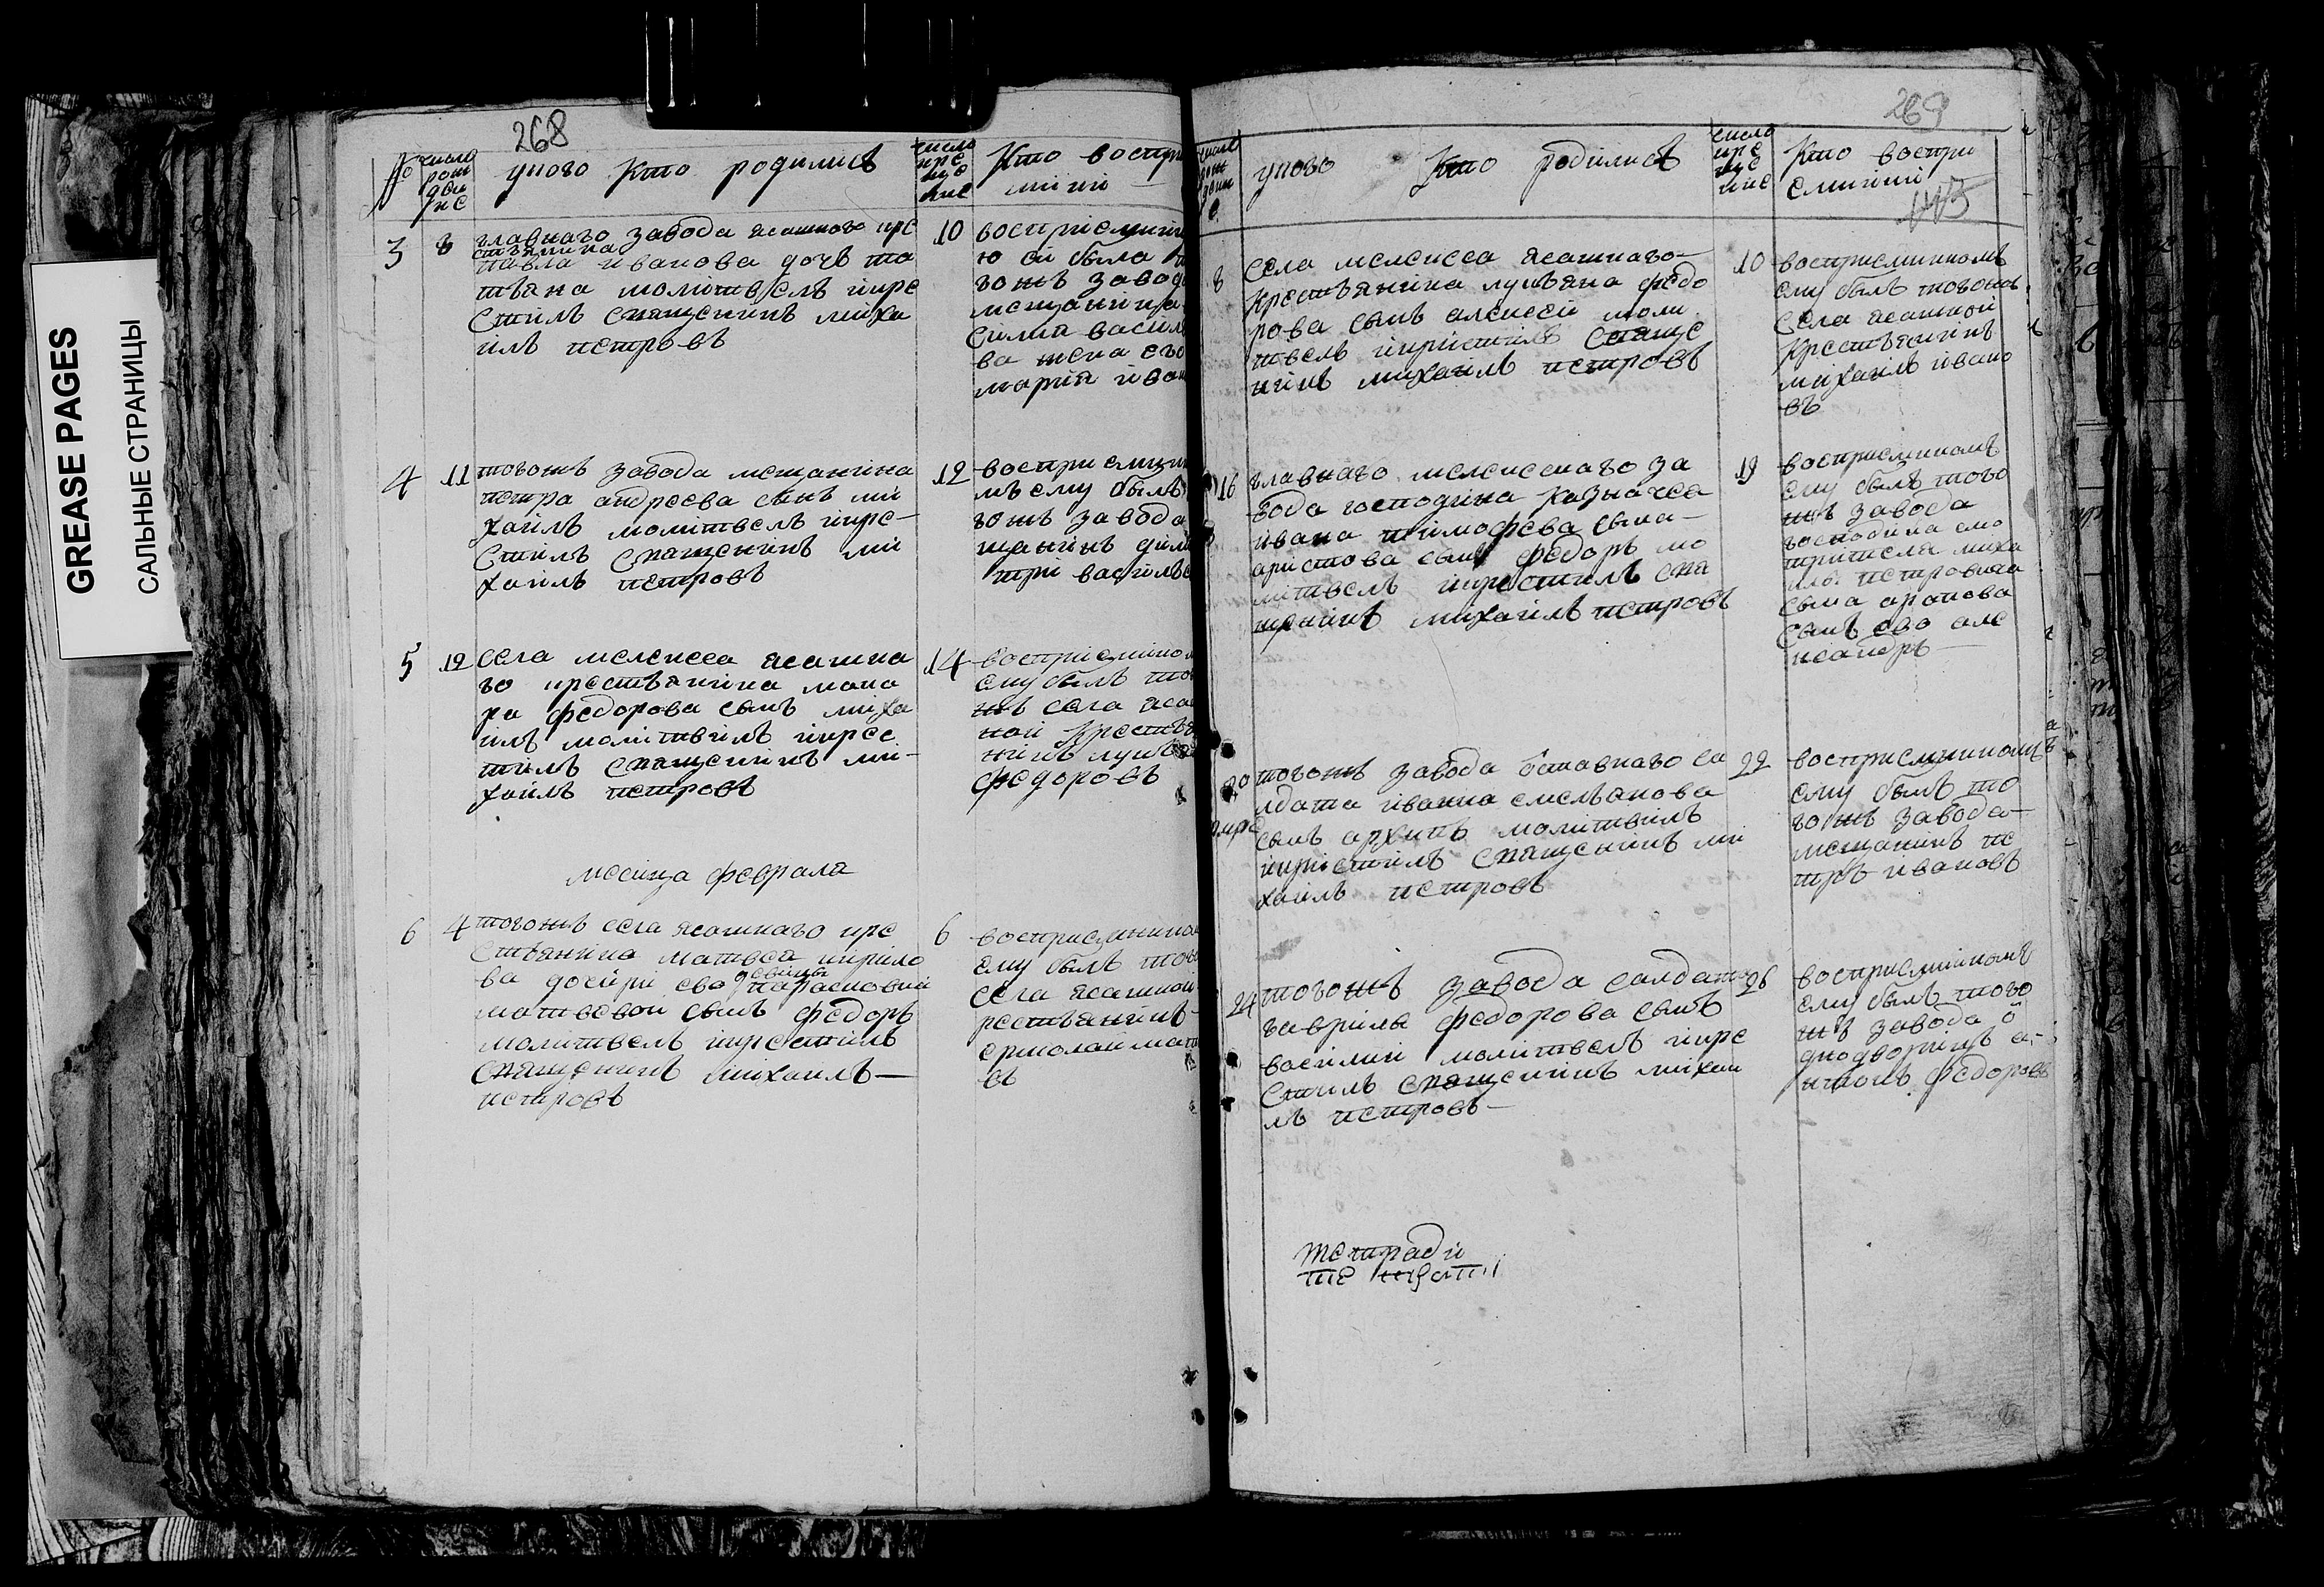 GREASE PAGES
САЛЬНЫЕ СТРАНИЦЫ
268
№
число
рож
дения
у кого кто родилис
число
кре
ще
ние
Кто воспри
мники
3
8
главнаго завода ясашного кре
стьянина
павла иванова дочь та
тьяна молитвелъ икре
стилъ священникъ миха
илъ петровъ
10
восприемнице
ю ей была
гожъ завод
мещанина
василь
ва жена его
мария иван
4
11
тогожъ завода мещанина
петра андреева сынъ ми
хаилъ молитвелъ икре
стилъ священникъ ми
хаилъ петровъ
12
восприемни
мъ ему былъ
гожъ завода
щанинъ дим
три василье
5
12
села мелекеса ясашна
го крестьянина мака
ра федорова сынъ миха
илъ молитвилъ икрес
тилъ священникъ ми
хаилъ петровъ
14
восприемнико
ему былъ то
жъ села яса
ной крестья
нинъ лукья
федоровъ
месяца февраля
6
4
тогожъ села ясашнаго кре
стьянина матвея кирило
ва дочери ево девицы парасковии
матвевой сынъ федоръ
молитвелъ икрестилъ
священникъ михаилъ
петровъ
6
восприемнико
ему былъ тово
села ясашной
рестьянинъ
ермолай мат
въ
269
у ково Кто родилис
число
кре
ще
ние
Кто воспри
емники
8
села мелекеса ясашнаго
крестьянина лукьяна федо
рова сынъ алексей моли
твелъ икристилъ священ
никъ михаилъ петровъ
10
восприемникомъ
ему былъ тогожъ
села ясашной
крестьянинъ
михаилъ ивано
въ
16
главнаго мелекескаго за
вода господина казначея
ивана тимофева сына
аристова сынъ федоръ мо
литвелъ икрестилъ свя
щенникъ михаилъ петровъ
19
восприемникомъ
ему былъ того
жъ завода
господина смо
трителя миха
ила петровича
сына арапова
сынъ ево але
ксандръ
20
тогожъ завода отставнаго са
лдата ивана емельянова
сынъ архипъ молитвилъ
икристилъ священникъ ми
хаилъ петровъ
22
восприемникомъ
ему былъ то
гожъ завода
мещанинъ пе
тръ ивановъ
24
тогожъ завода салдата
гаврилы федорова сынъ
василий молитвелъ икре
стилъ священникъ михаи
лъ петровъ
26
восприемникомъ
ему былъ того
жъ завода о
днодворецъ а
нтонъ федоровъ
тетради